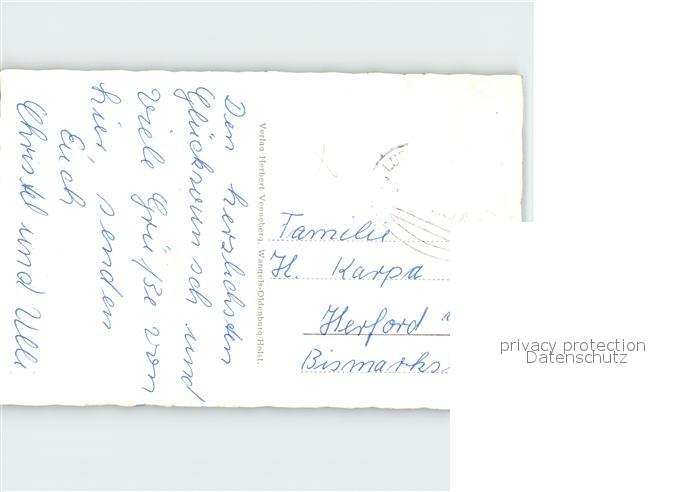 Den herzlichsten
Glückwunsch und
viele Grüße von
hier, senden
Euch
Christel und Ulli
Verlag Herbert Venneberg, Wangels-Oldenburg/Holst.
Familie
H. Karpa
Herford
Bismarks
privacy protection
Datenschutz